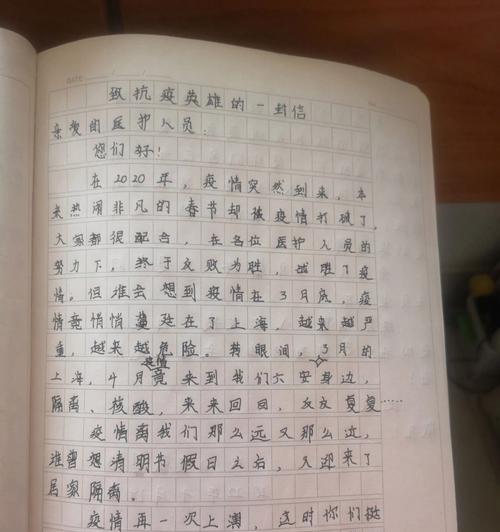 DATE
致抗疫英雄的一封信
亲爱的医护人员：
您们好！
在2020年，疫情突然到来，本
来热闹非凡的春节却被疫情打破了，
大家都很配合，在各位医护人员的
努力下，终于反败为胜，战胜了疫
情。但谁会想到疫情在3月底，疫
情竟悄悄蔓延在了上海，越来越严
重，越来越危险。转眼间，3月的
上海，4月疫情竟来到我们六安身边，
隔离、核酸，来来回回，反反复复……
疫情离我们那么远又那么近，
谁曾想清明节假日之后，又迎来了
居家隔离。
疫情再一次上演，这时你们挺